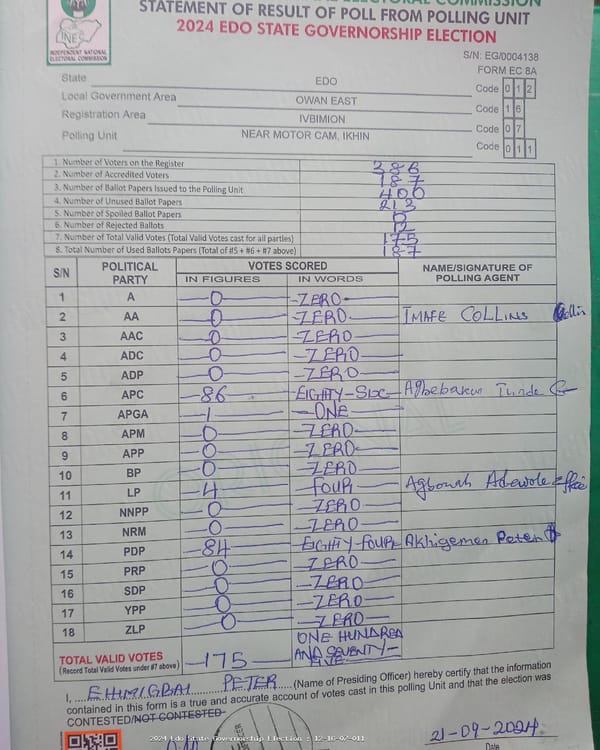 STATEMENT OF RESULT OF POLL FROM POLLING UNIT
2024 EDO STATE GOVERNORSHIP ELECTION
INEC
INDEPENDENT NATIONAL
ELECTORAL COMMISSION
S/N: EG/0004138
FORM EC 8A
State EDO Code 0 1 2
Local Government Area OWAN EAST Code 1 6
Registration Area IVBIMION Code 0 7
Polling Unit NEAR MOTOR CAM, IKHIN Code 0 1 1
1. Number of Voters on the Register 386
2. Number of Accredited Voters 187
3. Number of Ballot Papers Issued to the Polling Unit 400
4. Number of Unused Ballot Papers 213
5. Number of Spoiled Ballot Papers 0
6. Number of Rejected Ballots 12
7. Number of Total Valid Votes (Total Valid Votes cast for all parties) 175
8. Total Number of Used Ballots Papers (Total of #5 + #6 + #7 above) 187
S/N POLITICAL PARTY VOTES SCORED NAME/SIGNATURE OF POLLING AGENT
IN FIGURES IN WORDS
1 A 0 ZERO
2 AA 0 ZERO IMAFE COLLINS
3 AAC 0 ZERO
4 ADC 0 ZERO
5 ADP 0 ZERO
6 APC 86 EIGHTY-SIX Tunde
7 APGA 1 ONE
8 APM 0 ZERO
9 APP 0 ZERO
10 BP 0 ZERO
11 LP 4 FOUR Adewole
12 NNPP 0 ZERO
13 NRM 0 ZERO
14 PDP 84 EIGHTY-FOUR Akhigemen Peter
15 PRP 0 ZERO
16 SDP 0 ZERO
17 YPP 0 ZERO
18 ZLP 0 ZERO
TOTAL VALID VOTES 175 ONE HUNDRED AND SEVENTY-FIVE
(Record Total Valid Votes under #7 above)
I, EHIMIGBAI PETER (Name of Presiding Officer) hereby certify that the information
contained in this form is a true and accurate account of votes cast in this polling Unit and that the election was
CONTESTED/NOT CONTESTED
21-09-2024
Date
2024 Edo State Governorship Election : 12-16-07-011